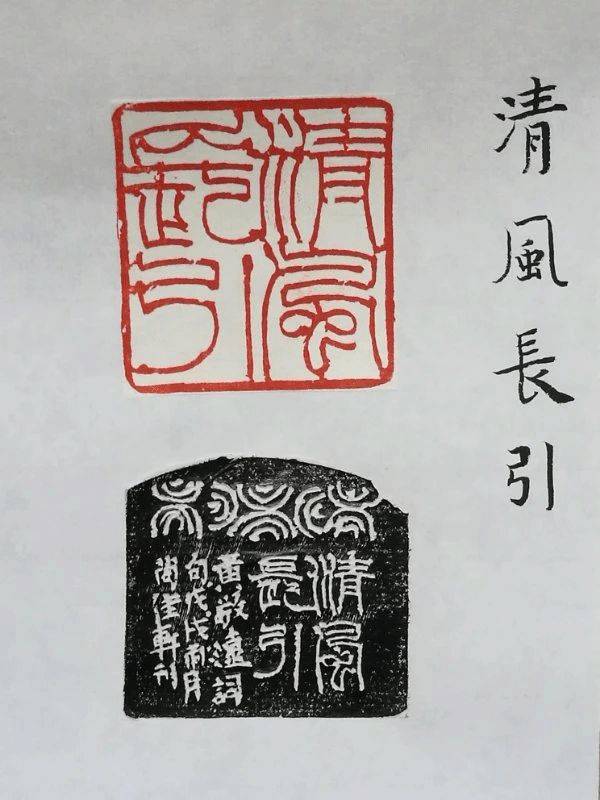 清風長引
清風
長引
清風
長引
黃遠詞
句戊戌月
軒刊